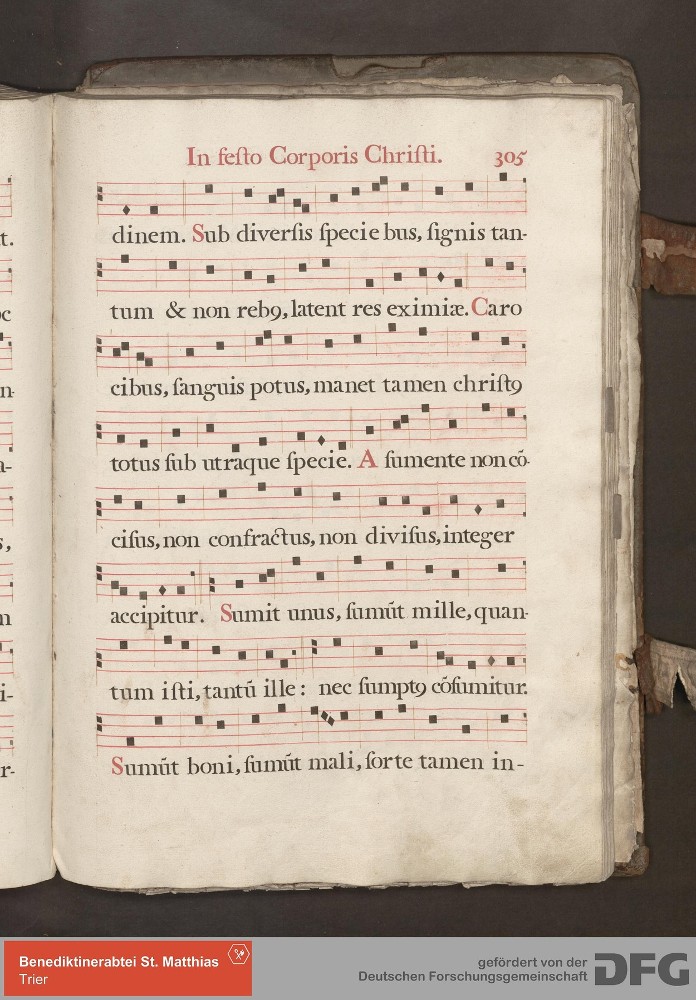 In feſto Corporis Chriſti. 305
dinem. Sub diverſis ſpecie bus, ſignis tan-
tum & non rebꝯ, latent res eximiæ. Caro
cibus, ſanguis potus, manet tamen chriſtꝯ
totus ſub utraque ſpecie. A ſumente non cō-
ciſus, non confractus, non diviſus, integer
accipitur. Sumit unus, ſumūt mille, quan-
tum iſti, tantū ille: nec ſumptꝯ cōſumitur.
Sumūt boni, ſumūt mali, ſorte tamen in-
t.
n-
a-
s,
m
i-
r-
Benediktinerabtei St. Matthias
Trier
gefördert von der
Deutschen Forschungsgemeinschaft
DFG